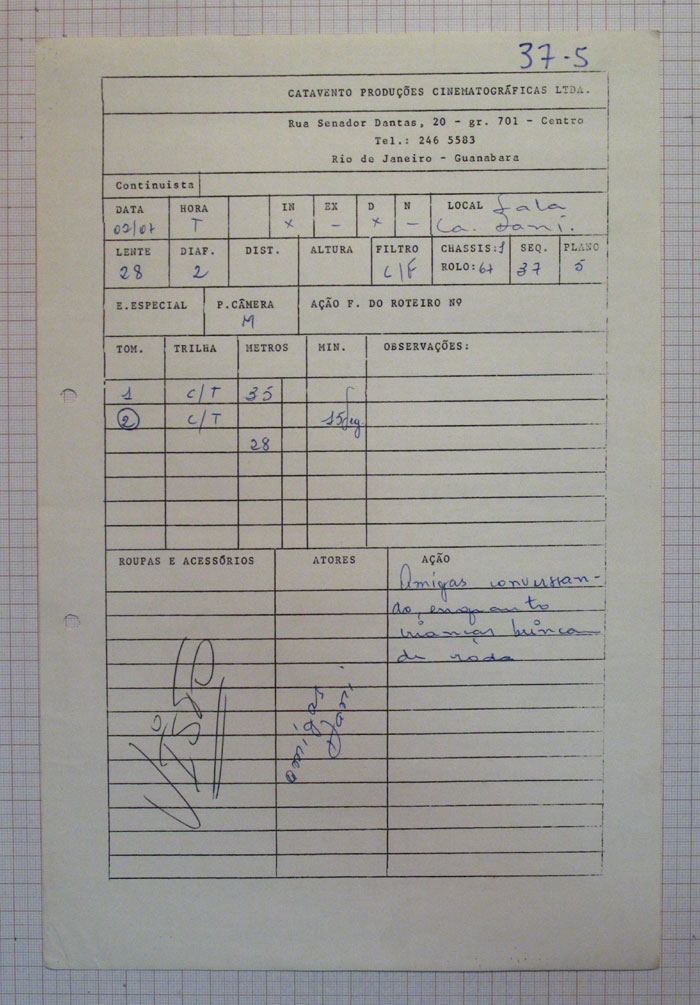 37-5
CATAVENTO PRODUÇÕES CINEMATOGRÁFICAS LTDA.
Rua Senador Dantas, 20 - gr. 701 - Centro
Tel.: 246 5583
Rio de Janeiro - Guanabara
Continuista
DATA HORA IN EX D N LOCAL Sala
02/07 T x - x - Ca. Dani.
LENTE DIAF. DIST. ALTURA FILTRO CHASSIS:1 SEQ. PLANO
28 2 C/F ROLO:67 37 5
E.ESPECIAL P.CÂMERA AÇÃO F. DO ROTEIRO Nº
M
TOM. TRILHA METROS MIN. OBSERVAÇÕES:
1 C/T 35
2 C/T 15seg
28
ROUPAS E ACESSÓRIOS ATORES AÇÃO
Amigas conversan-
do, enquanto
crianças brincam
de roda
VISTO